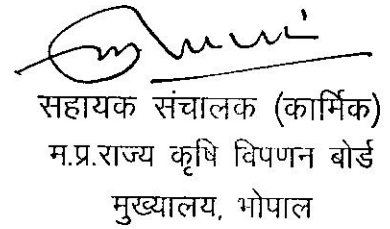 सहायक संचालक (कार्मिक)
म.प्र.राज्य कृषि विपणन बोर्ड
मुख्यालय, भोपाल